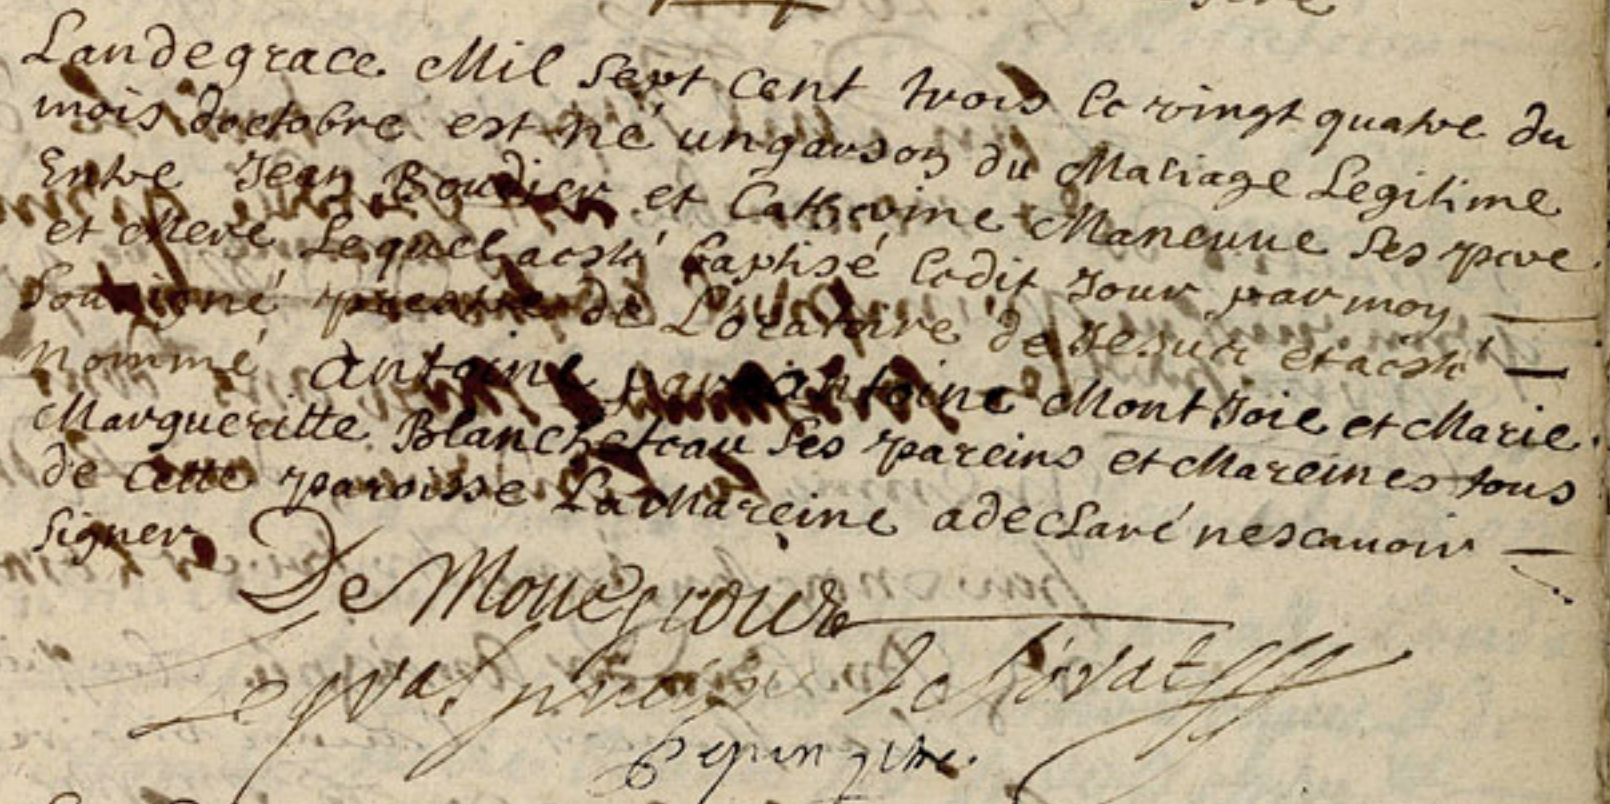 Landegrace Mil Sept Cent trois le vingt quatre du
mois doctobre est né ungarson du Mariage Legitime
Entre Jean Boudier et Catherine Maneuue Ses pere
et Mere Lequel aesté baptisé ledit Jour par moy
Sousigné preatre de L'oratoire de Jesus et aesté
Nommé antoine par antoine Mont Joie et Marie
Margueritte Blancheteau Ses pareins et Mareines tous
de Cette paroisse La Mareine adeclaré nescauoir
Signer
De
Pepin